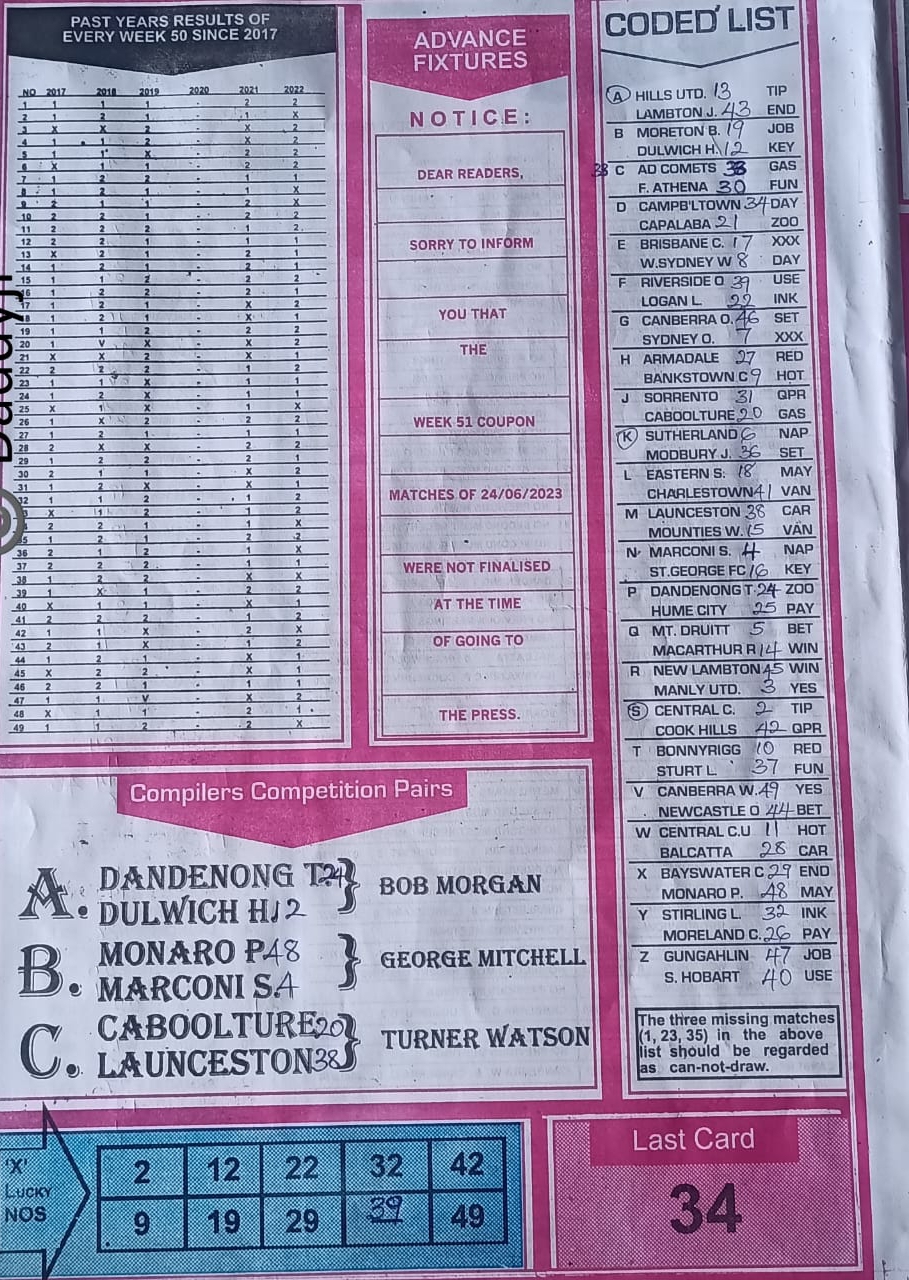 PAST YEARS RESULTS OF
EVERY WEEK 50 SINCE 2017
NO 2017 2018 2019 2020 2021 2022
1 1 1 1 - 2 2
2 1 2 1 - 1 X
3 X X 2 - X 2
4 1 1 2 - X 2
5 1 1 X - 2 2
6 X 1 1 - 2 2
7 1 2 2 - 1 1
8 1 2 1 - 1 X
9 2 1 1 - 2 X
10 2 2 1 - 2 2
11 2 2 2 - 1 2
12 2 2 1 - 1 1
13 X 2 1 - 2 1
14 1 2 1 - 1 2
15 1 1 2 - 2 2
16 1 2 2 - 2 1
17 1 2 1 - X 2
18 1 2 1 - X 1
19 1 1 2 - 2 2
20 1 V X - X 2
21 X X 2 - X 1
22 2 2 2 - 1 2
23 1 1 X - 1 1
24 1 2 X - 1 1
25 X 1 X - 1 X
26 1 X 2 - 2 2
27 1 2 1 - 1 1
28 2 X X - 2 2
29 1 2 2 - 2 1
30 2 1 2 - X 2
31 1 2 X - X 1
32 1 1 2 - 1 2
X 1 2 - 1 2
2 2 1 - 1 X
1 2 1 - 2 2
36 2 1 2 - 1 X
37 2 2 2 - 1 1
38 1 2 2 - X X
39 1 X 1 - 2 2
40 X 1 1 - X 1
41 2 2 2 - 1 2
42 1 1 X - 2 X
43 2 1 X - 1 2
44 1 2 1 - X 1
45 X 2 2 - X 1
46 2 2 1 - 1 1
47 1 1 V - X 2
48 X 1 1 - 2 1
49 1 1 2 - 2 X
ADVANCE
FIXTURES
NOTICE:
DEAR READERS,
SORRY TO INFORM
YOU THAT
THE
WEEK 51 COUPON
MATCHES OF 24/06/2023
WERE NOT FINALISED
AT THE TIME
OF GOING TO
THE PRESS.
CODED LIST
A HILLS UTD. 13 TIP
LAMBTON J. 43 END
B MORETON B. 19 JOB
DULWICH H. 12 KEY
38 C AD COMETS 33 GAS
F. ATHENA 30 FUN
D CAMPB'LTOWN 34 DAY
CAPALABA 21 ZOO
E BRISBANE C. 17 XXX
W.SYDNEY W 8 DAY
F RIVERSIDE O 39 USE
LOGAN L. 22 INK
G CANBERRA O. 46 SET
SYDNEY O. 7 XXX
H ARMADALE 27 RED
BANKSTOWN C 9 HOT
J SORRENTO 31 QPR
CABOOLTURE 20 GAS
K SUTHERLAND 6 NAP
MODBURY J. 36 SET
L EASTERN S. 18 MAY
CHARLESTOWN 41 VAN
M LAUNCESTON 38 CAR
MOUNTIES W. 15 VAN
N MARCONI S. 4 NAP
ST.GEORGE FC 16 KEY
P DANDENONG T 24 ZOO
HUME CITY 25 PAY
Q MT. DRUITT 5 BET
MACARTHUR R 14 WIN
R NEW LAMBTON 45 WIN
MANLY UTD. 3 YES
S CENTRAL C. 2 TIP
COOK HILLS 42 QPR
T BONNYRIGG 10 RED
STURT L. 37 FUN
V CANBERRA W. 49 YES
NEWCASTLE O 44 BET
W CENTRAL C.U 11 HOT
BALCATTA 28 CAR
X BAYSWATER C 29 END
MONARO P. 48 MAY
Y STIRLING L. 32 INK
MORELAND C. 26 PAY
Z GUNGAHLIN 47 JOB
S. HOBART 40 USE
The three missing matches
(1, 23, 35) in the above
list should be regarded
as can-not-draw.
Compilers Competition Pairs
A. DANDENONG T. 24
DULWICH H. 12
BOB MORGAN
B. MONARO P. 48
MARCONI S. 4
GEORGE MITCHELL
C. CABOOLTURE 20
LAUNCESTON 38
TURNER WATSON
'X'
LUCKY
NOS
2 12 22 32 42
9 19 29 39 49
Last Card
34